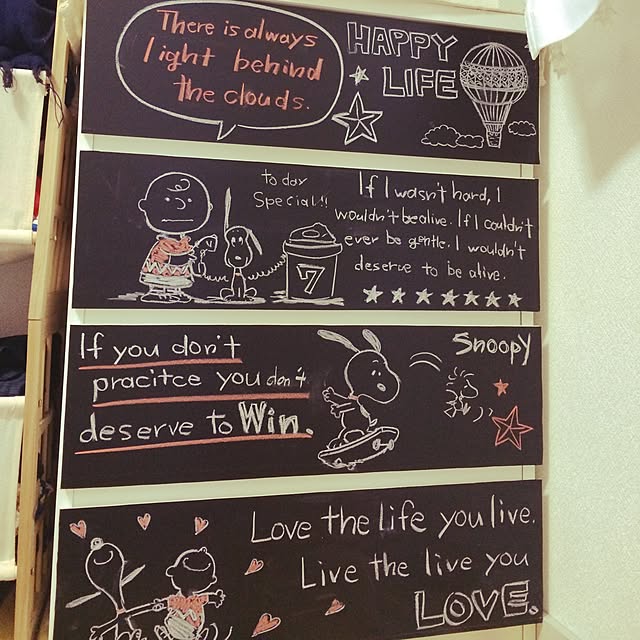 There is always
light behind
the clouds.
HAPPY
LIFE
to day
Special!!
If I wasn't hard, I
wouldn't be alive. If I couldn't
ever be gentle. I wouldn't
deserve to be alive.
7
If you don't
pracitce you don't
deserve to Win.
Snoopy
Love the life you live.
Live the live you
LOVE.